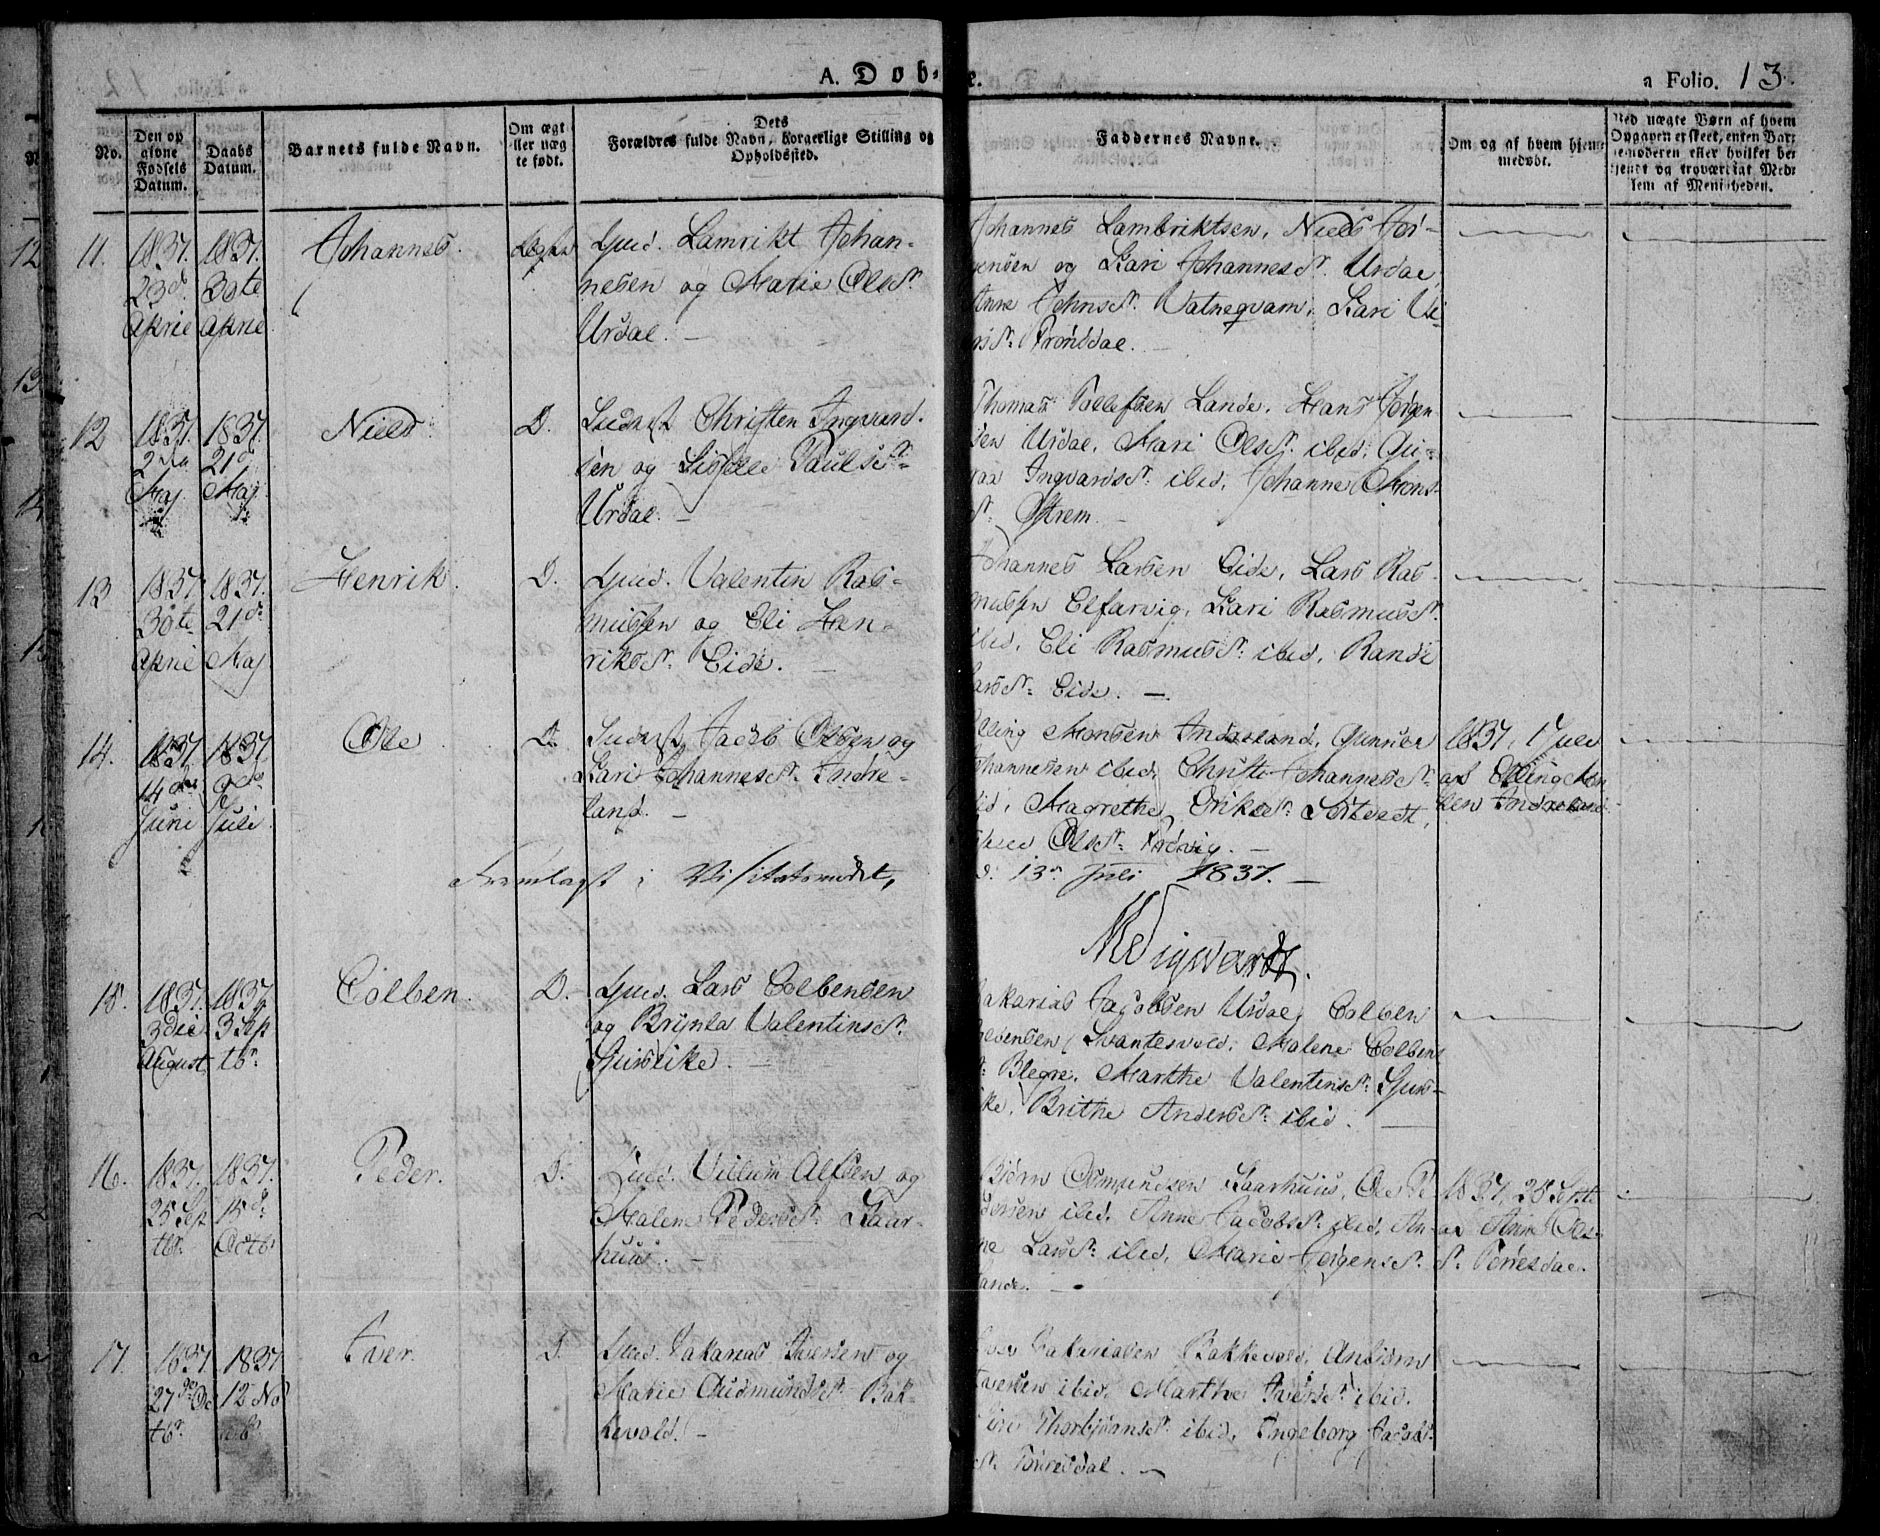 A. Döb-
e.
a Folio. 13.
No.
Den op
givne
Fødsels
Datum.
Daabs
Datum.
Barnets fulde Navn.
Om ægt
ller næg
te født.
Dets
Forældres fulde Navn, borgerlige Stilling og
Opholdssted.
Faddernes Navne.
Om og af hvem hjem-
medøbt.
Ved uægte Børn af hvem
Opgaven er skeet, enten Bar
nemoderen eller hvilket be
kjendt og troværdigt Med-
lem af Menigheden.
11.
1837.
23d
April
1837.
30te
April
Johannes.
Ægte
Gud. Lamrikt Johan-
nesen og Marie Olsdr.
Urdal. -
Johannes Lambriktsen, Niels Jör-
gensen og Kari Johannesdr. Urdal,
Anne Johnsdr. Vatneqvam, Kari
12
1837.
2den
Maj
1837.
21d
Maj
Niels.
D.
Christen Ingvard-
sen og Paulsdr.
Urdal. -
Thomas Tollefsen Lande, Hans Jörgen
sen Urdal, Mari Olsdr. ibid,
Ingvardsdr. ibid, Johanne Mons-
dr. Östrem. -
13
1837.
30te
April
1837.
21de
Maj
Henrik.
D.
Gud. Valentin Ras-
mussen og Eli Hen-
riksdr. Eide. -
Johannes Larsen Eide, Lars Ras-
mussen Elfarvig, Kari Rasmusdr.
ibid, Eli Rasmusdr. ibid, Randi
Larsdr. Eide. -
14.
1837.
14de
Juni
1837.
2den
Juli
Ole
D.
Jacob Olsen og
Kari Johannesdr. Indre-
land. -
Elling Monsen Indreland, Gunner
Johannesen ibid, Christi Johannesdr.
ibid, Magrethe Eriksdr.
Olsdr.
1837, 1 Juli
af Elling Mon
sen Indreland.
Fremlagt i Visitatsmödet,
d. 13de Juli 1837. -
15.
1837.
3die
August
1837.
3 Sep
tbr.
Colben.
D.
Gud. Lars Colbensen
og Brynla Valentinsdr.
Gjuvslike. -
Sakarias Jacobsen Urdal, Colben
Colbensen Svantesvold, Malene Colbens
dr. Blegre, Marthe Valentinsdr. Gjuvs-
like, Brithe Andersdr. ibid.
16.
1837.
25 Sep
tbr.
1837.
15de
Octbr
Peder.
D.
Gud. Villum Alfsen og
Malene Pedersdr. Kaar-
huus. -
Björn Osmundsen Kaarhuus, Ole Pe-
dersen ibid, Anne Jacobsdr. ibid, An-
ne Larsdr. ibid, Marie Jörgensdr.
Lande. -
1837, 28 Septb
af Anne Ols-
dr. Töresdal.
17.
1837.
27de Oc
tbr.
1837
12 No
vbr
Iver.
D.
Gud. Sakarias Iversen og
Marie Gudmundsdr. Bak-
kevold. -
Iver Sakariasen Bakkevold, Anbjörn
Iversen ibid, Marthe Iversdr. ibid,
Siri Thorbjörnsdr. ibid, Ingeborg Jacobs-
dr. Töresdal. -